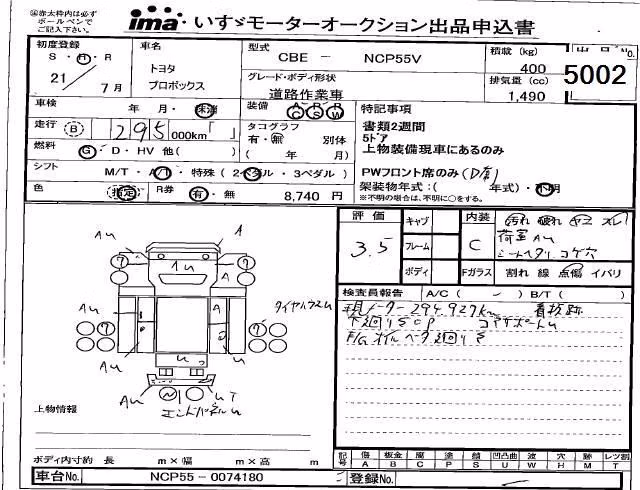 ※赤太枠内は必ず
ボールペンで
ご記入下さい。
ima いすゞモーターオークション出品申込書
初度登録 車名 型式 CBE － NCP55V 積載 (kg) 400
S・H・R トヨタ グレード・ボディ形状 排気量 (cc) 5002
21 / 7月 プロボックス 道路作業車 1,490
車検 年 月・抹消 装備 A P R C S W 特記事項
走行 B 295 000km「 」 タコグラフ 書類2週間
有・無 別体 5ドア
燃料 G・D・HV 他( ) ( 年 月) 上物装備現車にあるのみ
シフト M/T・A/T・特殊 (2ペダル・3ペダル) PWフロント席のみ
架装物年式：( 年式)・不明
色 指定 R券 有・無 8,740 円 ※不明の場合は、不明に○をする。
評価 3.5 キャブ 内装 C 汚れ 破れ ヤコ スレ
フレーム 荷室 AU
ボディ Fガラス 割れ 線 点傷 イバリ
検査員報告 A/C ( ) B/T ( )
現メーター294.927km 看板跡
AU A
AU A
タイヤハウスU
AU
エンドパネルU
上物情報
ボディ内寸約 長 m×幅 m×高 m
記号 傷 A 板金 B 腐 C 塗 P 錆 S 凹凸曲 U 波 W 穴 H 跡 M レツ割 T
車台No. NCP55－0074180 登録No.